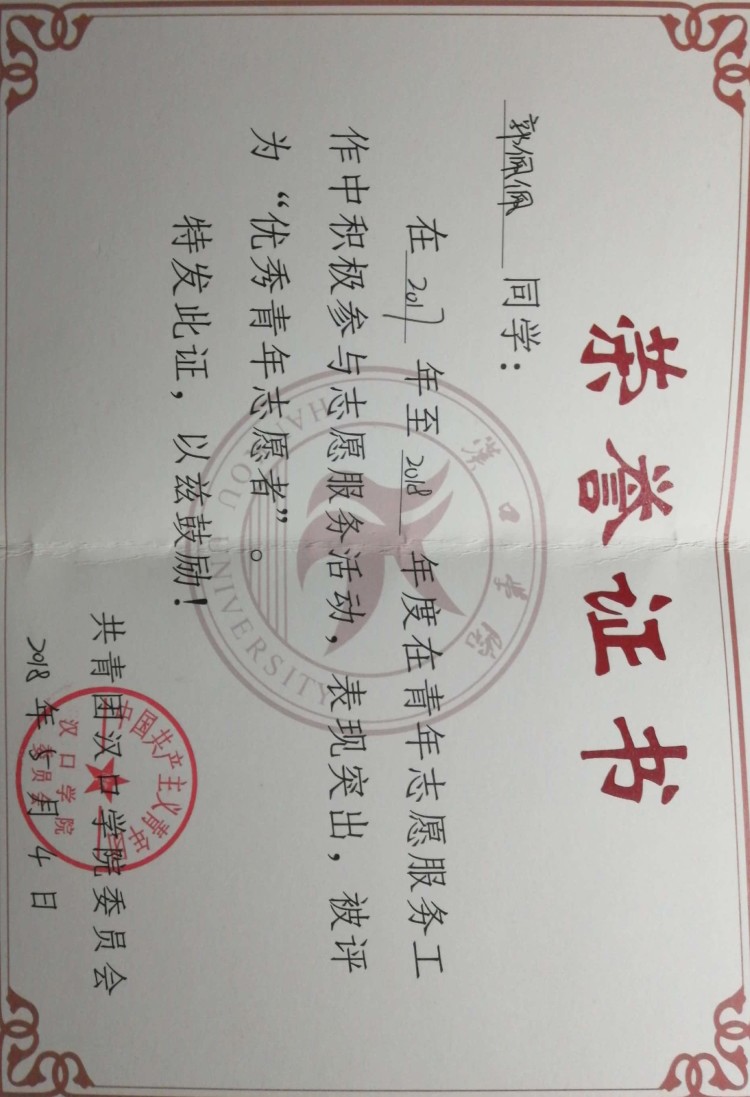 荣誉证书
郭佩佩 同学：
在 2017 年至 2018 年度在青年志愿服务工
作中积极参与志愿服务活动，表现突出，被评
为“优秀青年志愿者”。
特发此证，以兹鼓励！
共青团汉口学院委员会
2018 年 月 4 日
汉口学院
HANKOU UNIVERSITY
中国共产主义青年团
汉口学院
委员会